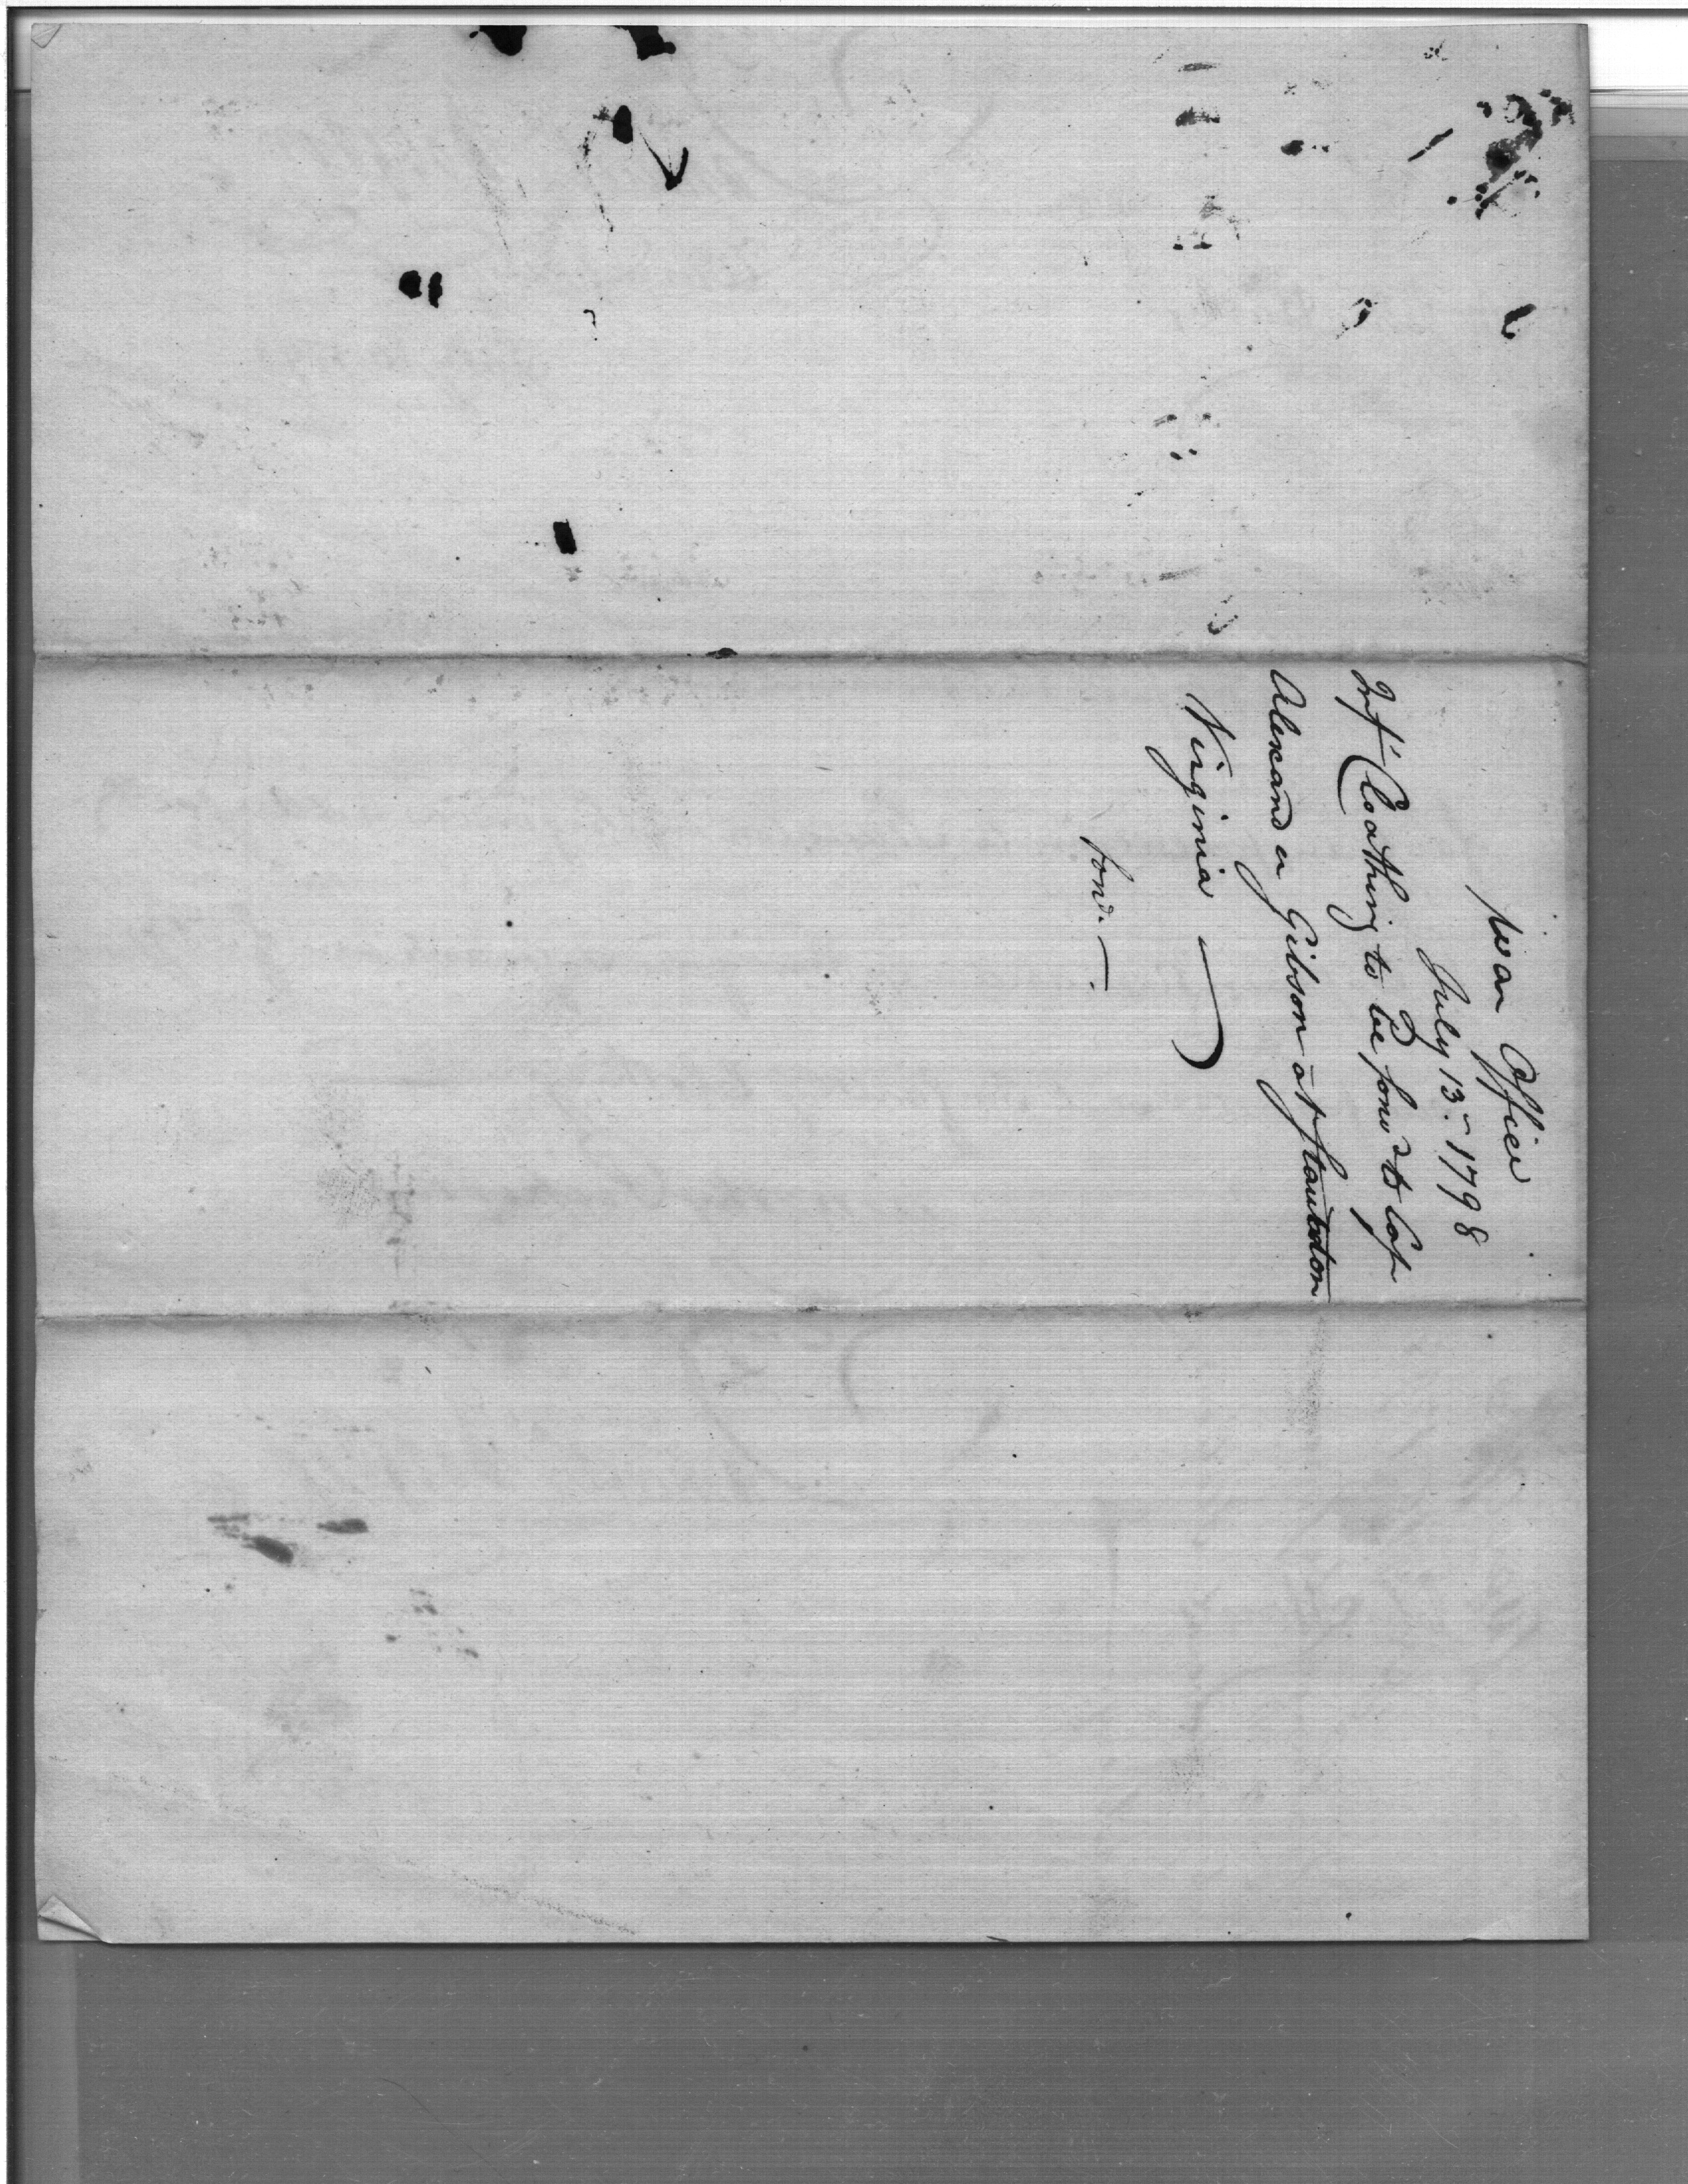 War Office
July 13. 1798
Inf.y Cloathing to be forwd to Cap
Alexander Gibson at Staunton
Virginia —
ford. —